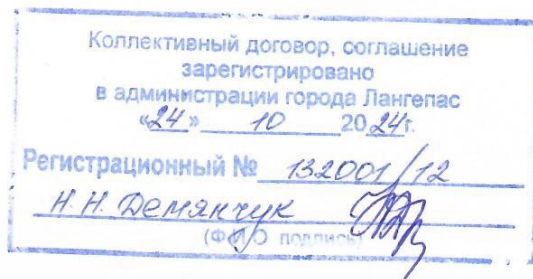 Коллективный договор, соглашение
зарегистрировано
в администрации города Лангепас
«24» 10 2024г.
Регистрационный № 132001/12
Н.Н. Демянчук
(Ф.И.О подпись)